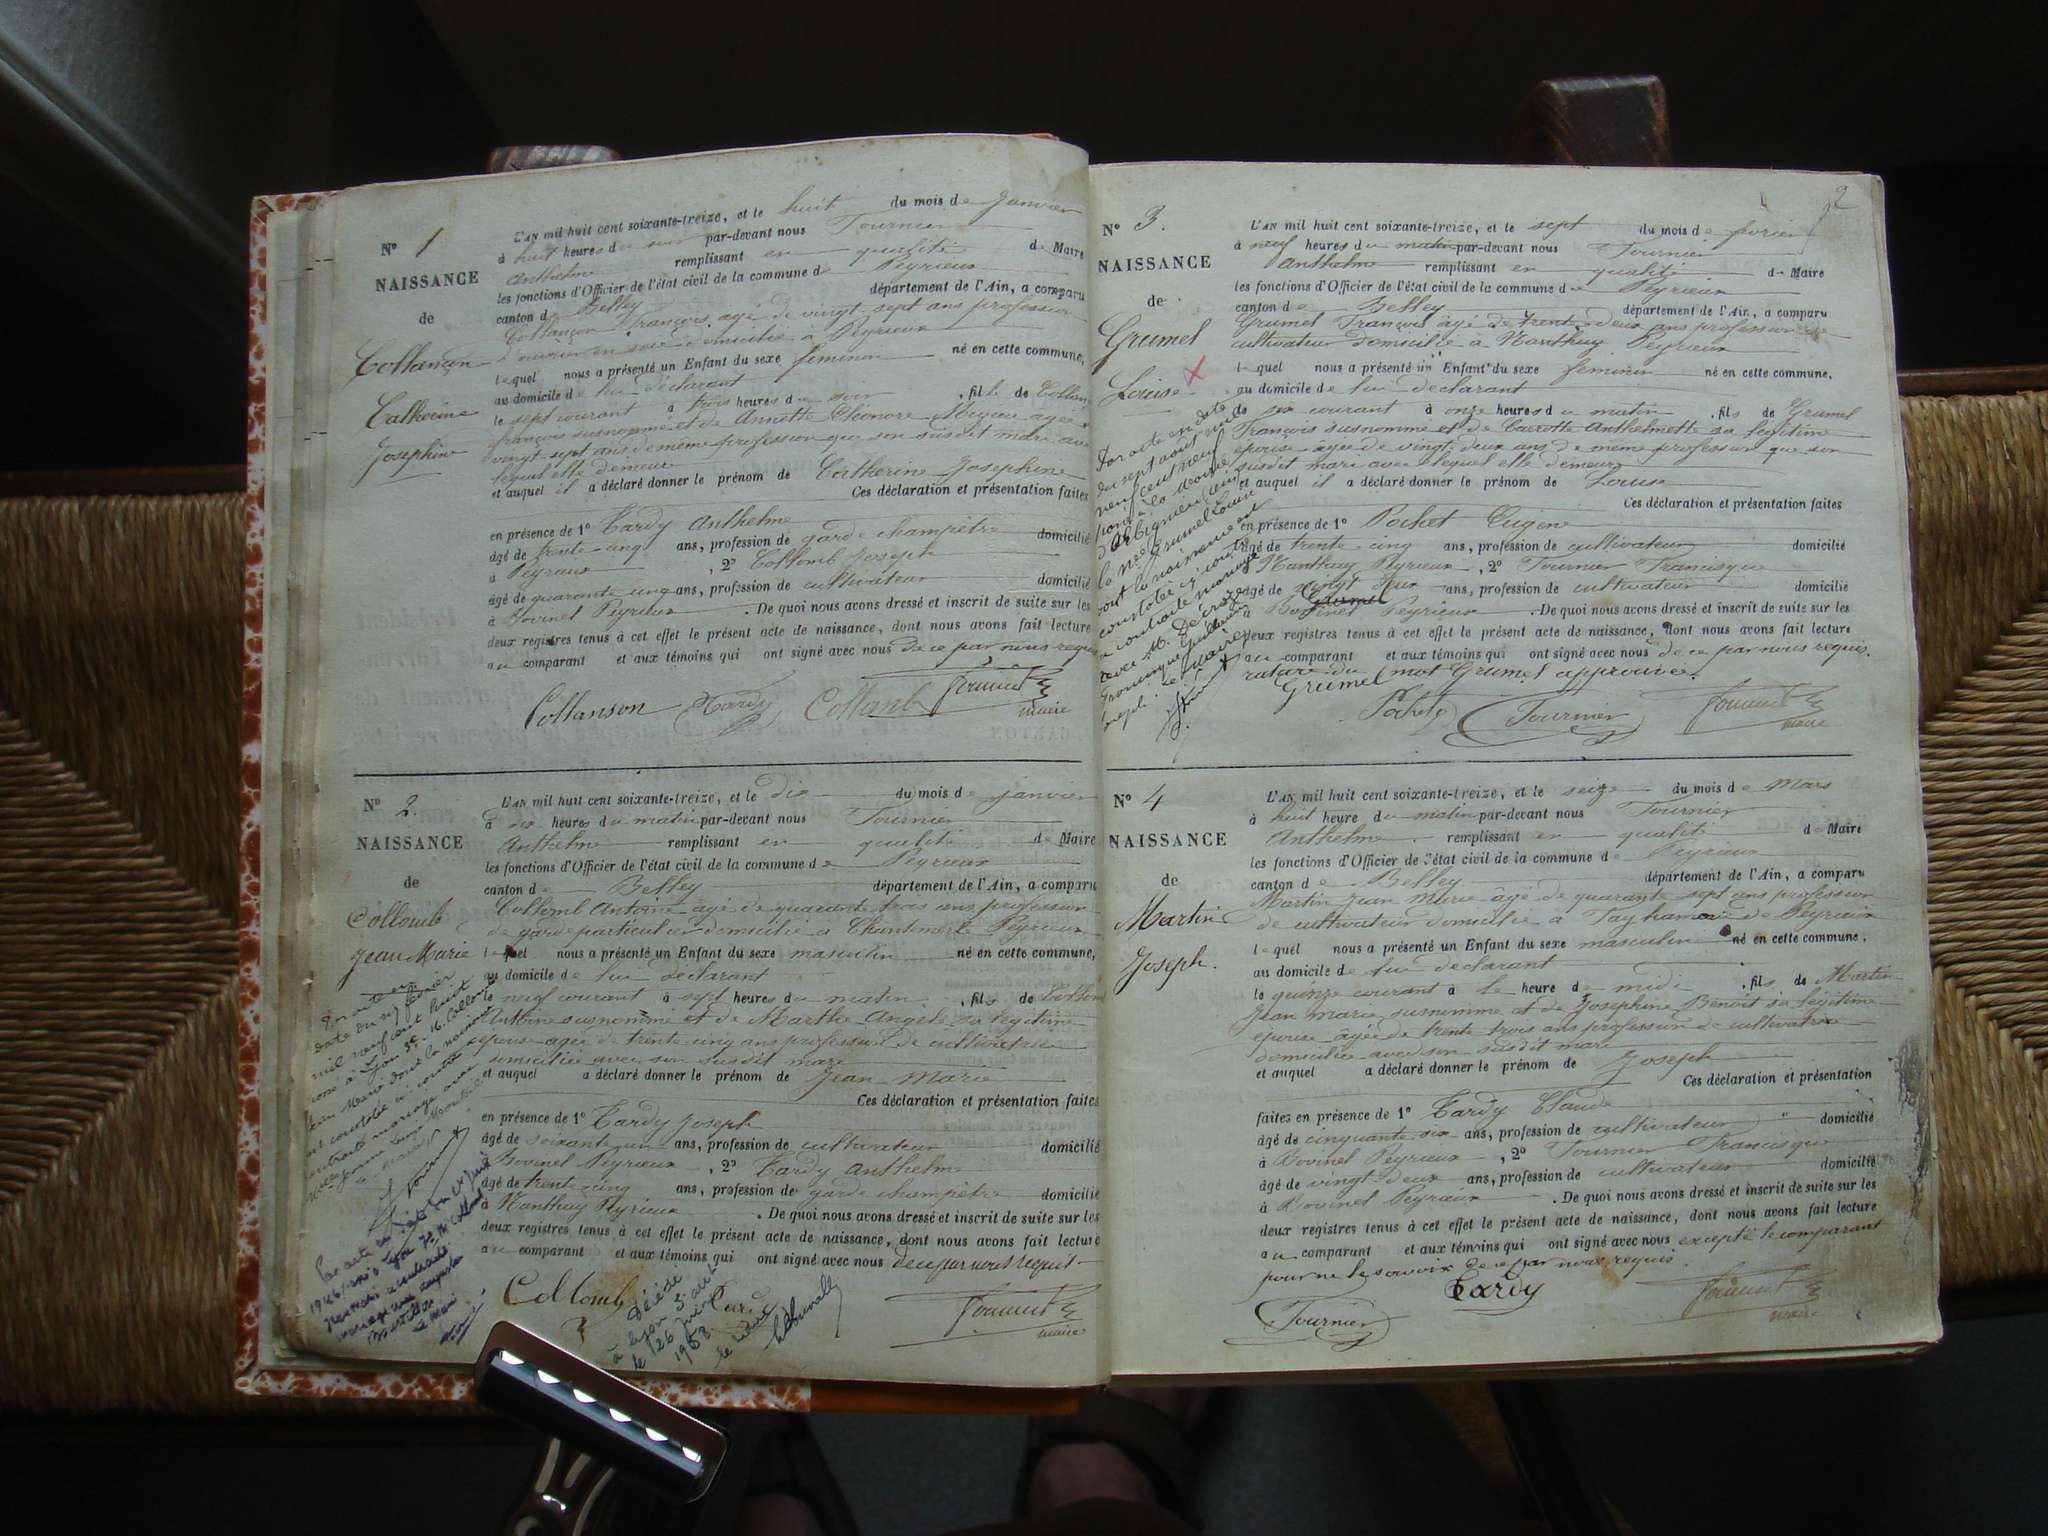 N° 1
NAISSANCE
de
Collançon
Catherine
Josephine
L'AN mil huit cent soixante-treize, et le huit du mois de Janvier
à huit heures du soir par-devant nous Tournier
Anthelme remplissant en qualité de Maire
les fonctions d'Officier de l'état civil de la commune de Peyrieux
canton de Belley département de l'Ain, a comparu
Collançon François âgé de vingt sept ans profession
d'ouvrier en soie domicilié à Peyrieux
lequel nous a présenté un Enfant du sexe feminin né en cette commune,
au domicile de lui déclarant
le sept courant à trois heures du soir , fille de Collan
françois susnommé et de Annette Eleonore agée
vingt sept ans de même profession que son susdit mari avec
lequel elle demeure
et auquel il a déclaré donner le prénom de Catherine Josephine
Ces déclaration et présentation faites
en présence de 1° Tardy Anthelme
âgé de trente cinq ans, profession de garde champêtre domicilié
à Peyrieux , 2° Collomb Joseph
âgé de quarante cinq ans, profession de cultivateur domicilié
à Bovinel Peyrieux . De quoi nous avons dressé et inscrit de suite sur les
deux registres tenus à cet effet le présent acte de naissance, dont nous avons fait lecture
au comparant et aux témoins qui ont signé avec nous de ce par nous requis
Collanson Tardy Collomb Tournier
maire
N° 2.
NAISSANCE
de
Collomb
Jean Marie
L'AN mil huit cent soixante-treize, et le dix du mois de janvier
à dix heures du matin par-devant nous Tournier
Anthelme remplissant en qualité de Maire
les fonctions d'Officier de l'état civil de la commune de Peyrieux
canton de Belley département de l'Ain, a comparu
Collomb Antoine âgé de quarante trois ans profession
de garde particulier domicilié à Chantemerle Peyrieux
lequel nous a présenté un Enfant du sexe masculin né en cette commune,
au domicile de lui declarant
le neuf courant à sept heures du matin , fils de Collom
Antoine susnommé et de Marthe Angele sa légitime
epouse agée de trente cinq ans profession de cultivatrice
domiciliée avec son susdit mari
et auquel a déclaré donner le prénom de Jean Marie
Ces déclaration et présentation faites
en présence de 1° Tardy Joseph
âgé de soixante un ans, profession de cultivateur domicilié
à Bovinel Peyrieux , 2° Tardy Anthelme
âgé de trente cinq ans, profession de garde champêtre domicilié
à Nanthuy Peyrieux . De quoi nous avons dressé et inscrit de suite sur les
deux registres tenus à cet effet le présent acte de naissance, dont nous avons fait lecture
au comparant et aux témoins qui ont signé avec nous de ce par nous requis
Collomb Tardy Tournier
maire
Par acte en
date du
mil neuf cent huit
à Lyon 3e M. Collomb
Jean Marie dont la naissance
est constatée ci-contre a
contracté mariage avec
Décédé
à Lyon 5e arrt
le 26 juin
1953
le Maire
N° 3.
NAISSANCE
de
Grumel
Louise
2
L'AN mil huit cent soixante-treize, et le sept du mois de fevrier
à neuf heures du matin par-devant nous Tournier
Anthelme remplissant en qualité de Maire
les fonctions d'Officier de l'état civil de la commune de Peyrieux
canton de Belley département de l'Ain, a comparu
Grumel François âgé de trente deux ans profession de
cultivateur domicilié à Nanthuy Peyrieux
lequel nous a présenté un Enfant du sexe feminin né en cette commune,
au domicile de lui declarant
le six courant à onze heures du matin , fils de Grumel
François susnommé et de Carrotte Anthelmette sa légitime
epouse âgée de vingt deux ans de même profession que son
susdit mari avec lequel elle demeure
et auquel il a déclaré donner le prénom de Louise
Ces déclaration et présentation faites
en présence de 1° Pochet Eugène
âgé de trente cinq ans, profession de cultivateur domicilié
à Nanthuy Peyrieux , 2° Tournier Francisque
âgé de vingt deux ans, profession de cultivateur domicilié
Grumel
à Bovinel Peyrieux . De quoi nous avons dressé et inscrit de suite sur les
deux registres tenus à cet effet le présent acte de naissance, dont nous avons fait lecture
au comparant et aux témoins qui ont signé avec nous de ce par nous requis.
rature du mot Grumel approuvée.
Grumel Pochet Tournier Tournier
maire
Par acte en date
du sept août mil
neuf cent neuf
la née Grumel Louise
dont la naissance est
constatée ci contre
a contracté mariage
avec M.
N° 4
NAISSANCE
de
Martin
Joseph.
L'AN mil huit cent soixante-treize, et le seize du mois de Mars
à huit heure du matin par-devant nous Tournier
Anthelme remplissant en qualité de Maire
les fonctions d'Officier de l'état civil de la commune de Peyrieux
canton de Belley département de l'Ain, a comparu
Martin Jean Marie âgé de quarante sept ans profession
de cultivateur domicilié à de Peyrieux
lequel nous a présenté un Enfant du sexe masculin né en cette commune,
au domicile de lui declarant
le quinze courant à le heure de midi , fils de Martin
Jean Marie susnommé et de Josephine Benoit sa légitime
épouse âgée de trente trois ans profession de cultivatrice
domiciliée avec son susdit mari
et auquel a déclaré donner le prénom de Joseph
Ces déclaration et présentation
faites en présence de 1° Tardy Claude
âgé de cinquante six ans, profession de cultivateur domicilié
à Bovinel Peyrieux , 2° Tournier Francisque
âgé de vingt deux ans, profession de cultivateur domicilié
à Bovinel Peyrieux . De quoi nous avons dressé et inscrit de suite sur les
deux registres tenus à cet effet le présent acte de naissance, dont nous avons fait lecture
au comparant et aux témoins qui ont signé avec nous excepté le comparant
pour ne le savoir de ce par nous requis.
Tournier Tardy Tournier
maire